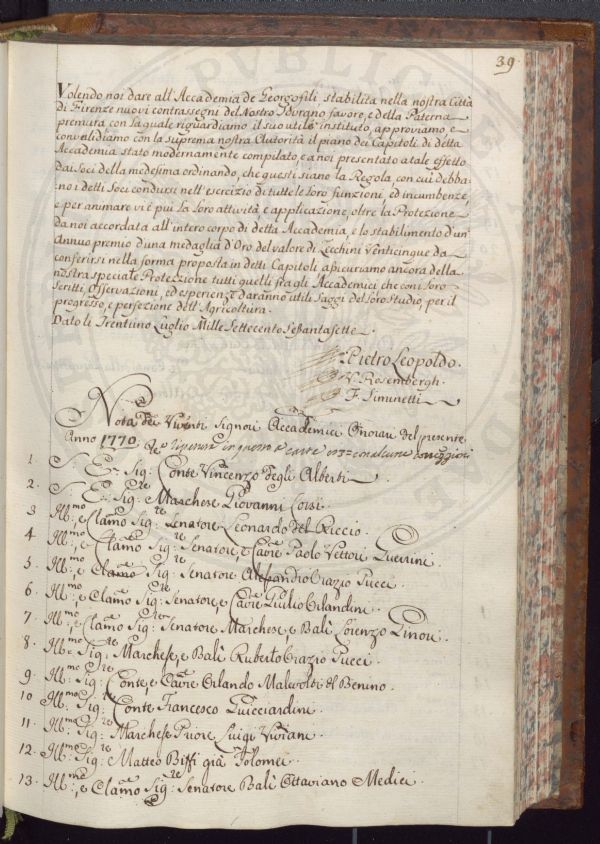 39.
Volendo noi dare all'Accademia de Georgofili stabilita nella nostra Città
di Firenze nuovi contrassegni del Nostro Sovrano favore, e della Paterna
premura con la quale riguardiamo il suo utile instituto, approviamo, e
convalidiamo con la suprema nostra Autorità il piano dei Capitoli di detta
Accademia stato modernamente compilato, e a noi presentato a tale effetto
dai Soci della medesima ordinando, che questi siano la Regola con cui debba-
no i detti Soci condursi nell'esercizio di tutte le loro funzioni, ed incumbenze,
e per animare vi è più la loro attività, e applicazione, oltre la Protezione
da noi accordata all'intero corpo di detta Accademia, e lo stabilimento d'un
Annuo premio d'una medaglia d'Oro del valore di Zecchini Venticinque da
conferirsi nella forma proposta in detti Capitoli assicuriamo ancora della
nostra speciale Protezzione tutti quelli fra gli Accademici che con i loro
scritti, osservazioni, ed esperienze daranno utili saggi del loro studio, per il
progresso, e perfezione dell'Agricoltura.
Dato li Trentuno Luglio Mille Settecento Sessantasette.
Pietro Leopoldo.
V. Rosembergh.
F. Simunetti
Nota dei Viventi Signori Accademici Onorari del presente
Anno 1770. che in questo a carte con alcune
1. S. E. Sig:re Conte Vincenzo degli Alberti
2. S. E. Sig:re Marchese Giovanni Corsi.
3 Ill:mo, e Clamo Sig:re Senatore Leonardo del Riccio.
4 Ill:mo, e Clamo Sig:re Senatore, e Cavre Paolo Vettori Guerrini.
5. Ill:mo, e Clamo Sig:re Senatore Alessandro Orazio Pucci.
6. Ill:mo, e Clamo Sig:re Senatore, e Cavre Giulio Orlandini.
7. Ill:mo, e Clamo Sig:re Senatore Marchese, e Balì Lorenzo Ginori.
8. Ill:mo Sig:re Marchese, e Balì Ruberto Orazio Pucci.
9. Ill:mo Sig:re Conte, e Cavre Orlando Malevolti del Benino.
10 Ill:mo Sig:re Conte Francesco Guicciardini.
11. Ill:mo Sig:re Marchese Priore Luigi Viviani.
12. Ill:mo Sig:re Matteo Biffi già Tolomei.
13. Ill:mo, e Clamo Sig:re Senatore Balì Ottaviano Medici.